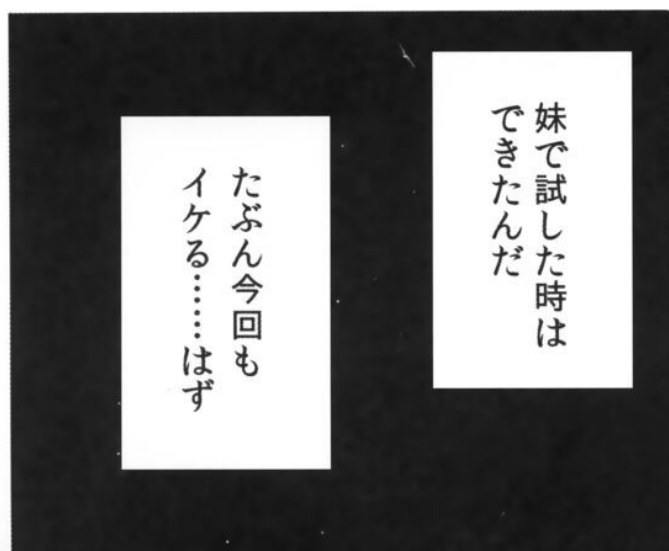 妹で試した時は
できたんだ
たぶん今回も
イケる……はず